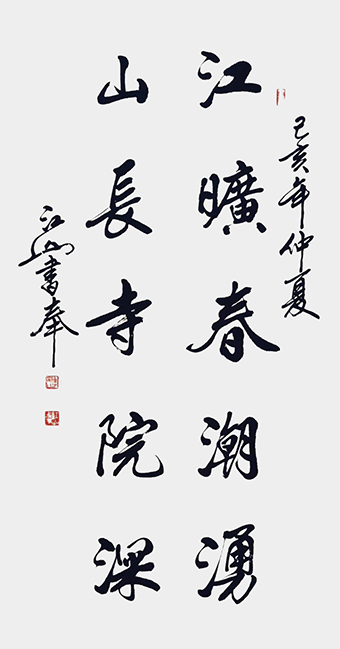 己亥年仲夏
江曠春潮湧
山長寺院深
江山書奉